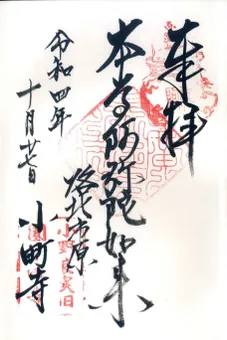 奉拝
本尊阿弥陀如来
洛北市原
小町寺
令和四年
十月廿七日